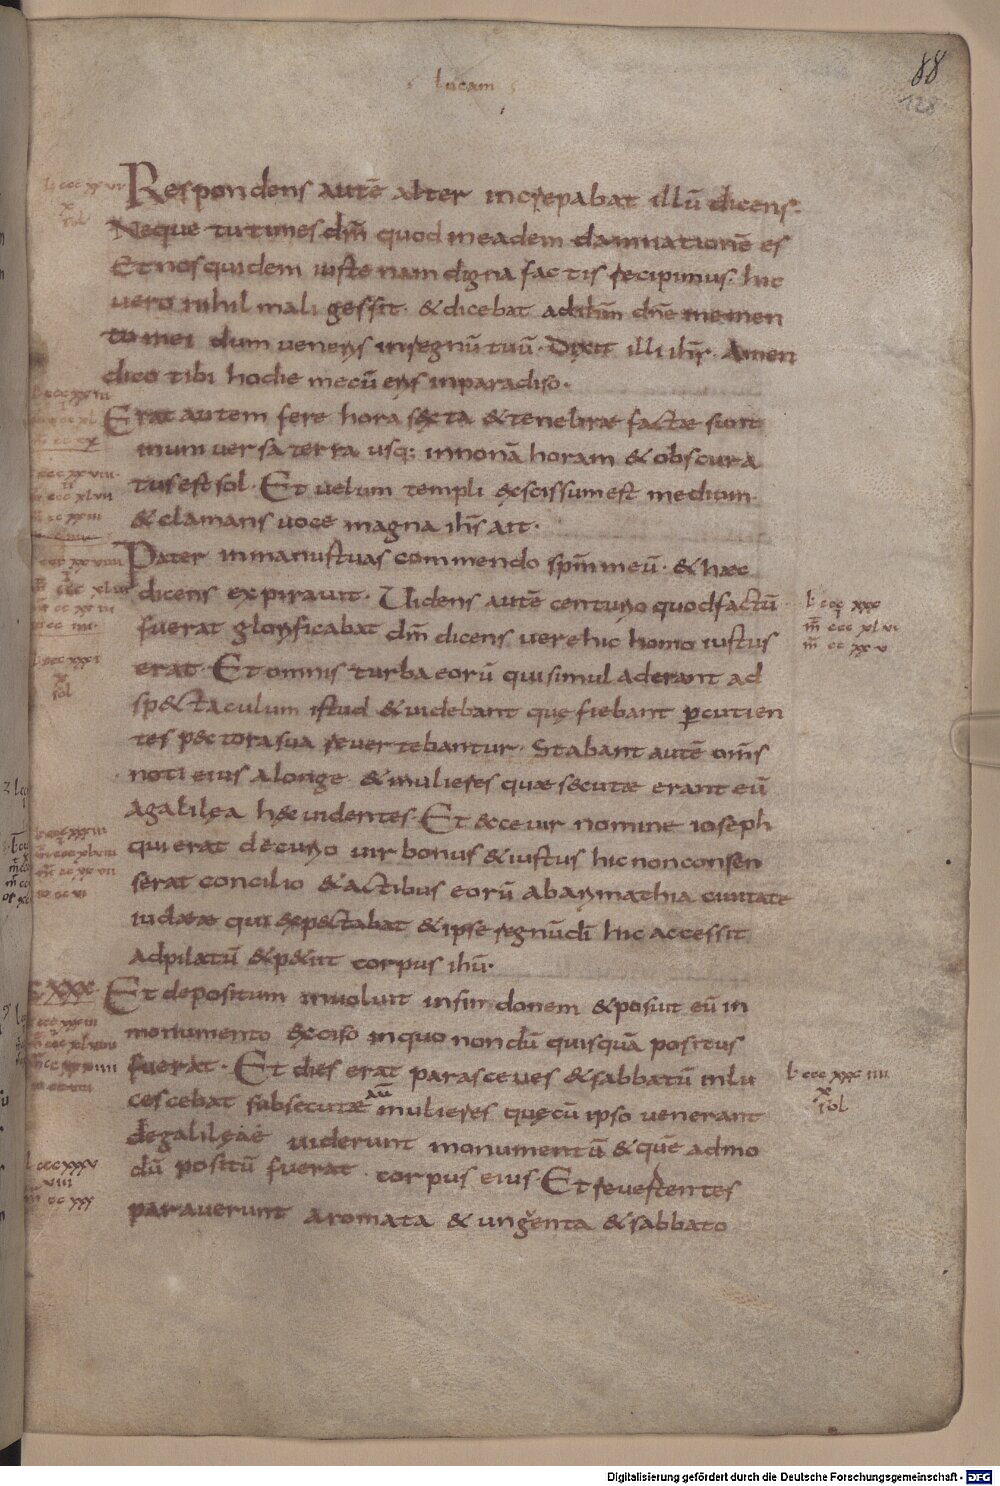 lucam
88
128
Respondens autē alter increpabat illū dicens.
Neque tu times dm̄ quod in eadem damnationē es
Et nos quidem iuste nam digna factis recipimus. hic
uero nihil mali gessit. & dicebat ad ihm̄ dn̄e memen
to mei dum ueneris in regnū tuū. Dixit illi ihs̄. Amen
dico tibi hodie mecū eris in paradiso.
Erat autem fere hora sexta & tenebrae factae sunt
in uniuersa terra usq; in nonā horam & obscura
tus est sol. Et uelum templi &scissum est medium.
& clamans uoce magna ihs̄ ait.
Pater in manus tuas commendo spm̄ meū. & haec
dicens expirauit. Uidens autē centurio quod factū
l ccc xxx
m̄ ccc xl vi
m̄ cc xx v
fuerat glorificabat dm̄ dicens uere hic homo iustus
erat. Et omnis turba eorū qui simul aderant ad
sp&taculum istud & uidebant quę fiebant ꝑcutien
tes pectora sua reuertebantur. Stabant autē om̄s
noti eius a longe & mulieres quae secutae erant eū
a galilęa hęc uidentes. Et ecce uir nomine ioseph
qui erat decurio uir bonus & iustus hic non consen
serat concilio & actibus eorū ab arimathia ciuitate
iudaeae qui exp&tabat & ipse regnū dī hic accessit
ad pilatū & p&iit corpus ihū.
XXX. Et depositum inuoluit in sindonem & posuit eū in
monumento exciso in quo nondū quisquā positus
fuerat. Et dies erat parasceues & sabbatū inlu
l ccc xxx iiii
x
sol
cescebat subsecutae aū mulieres quę cū ipso uenerant
de galilęae uiderunt monumentū & quē admo
dū positū fuerat. corpus eius. Et reuertentes
parauerunt aromata & ungenta & sabbato
Digitalisierung gefördert durch die Deutsche Forschungsgemeinschaft - DFG